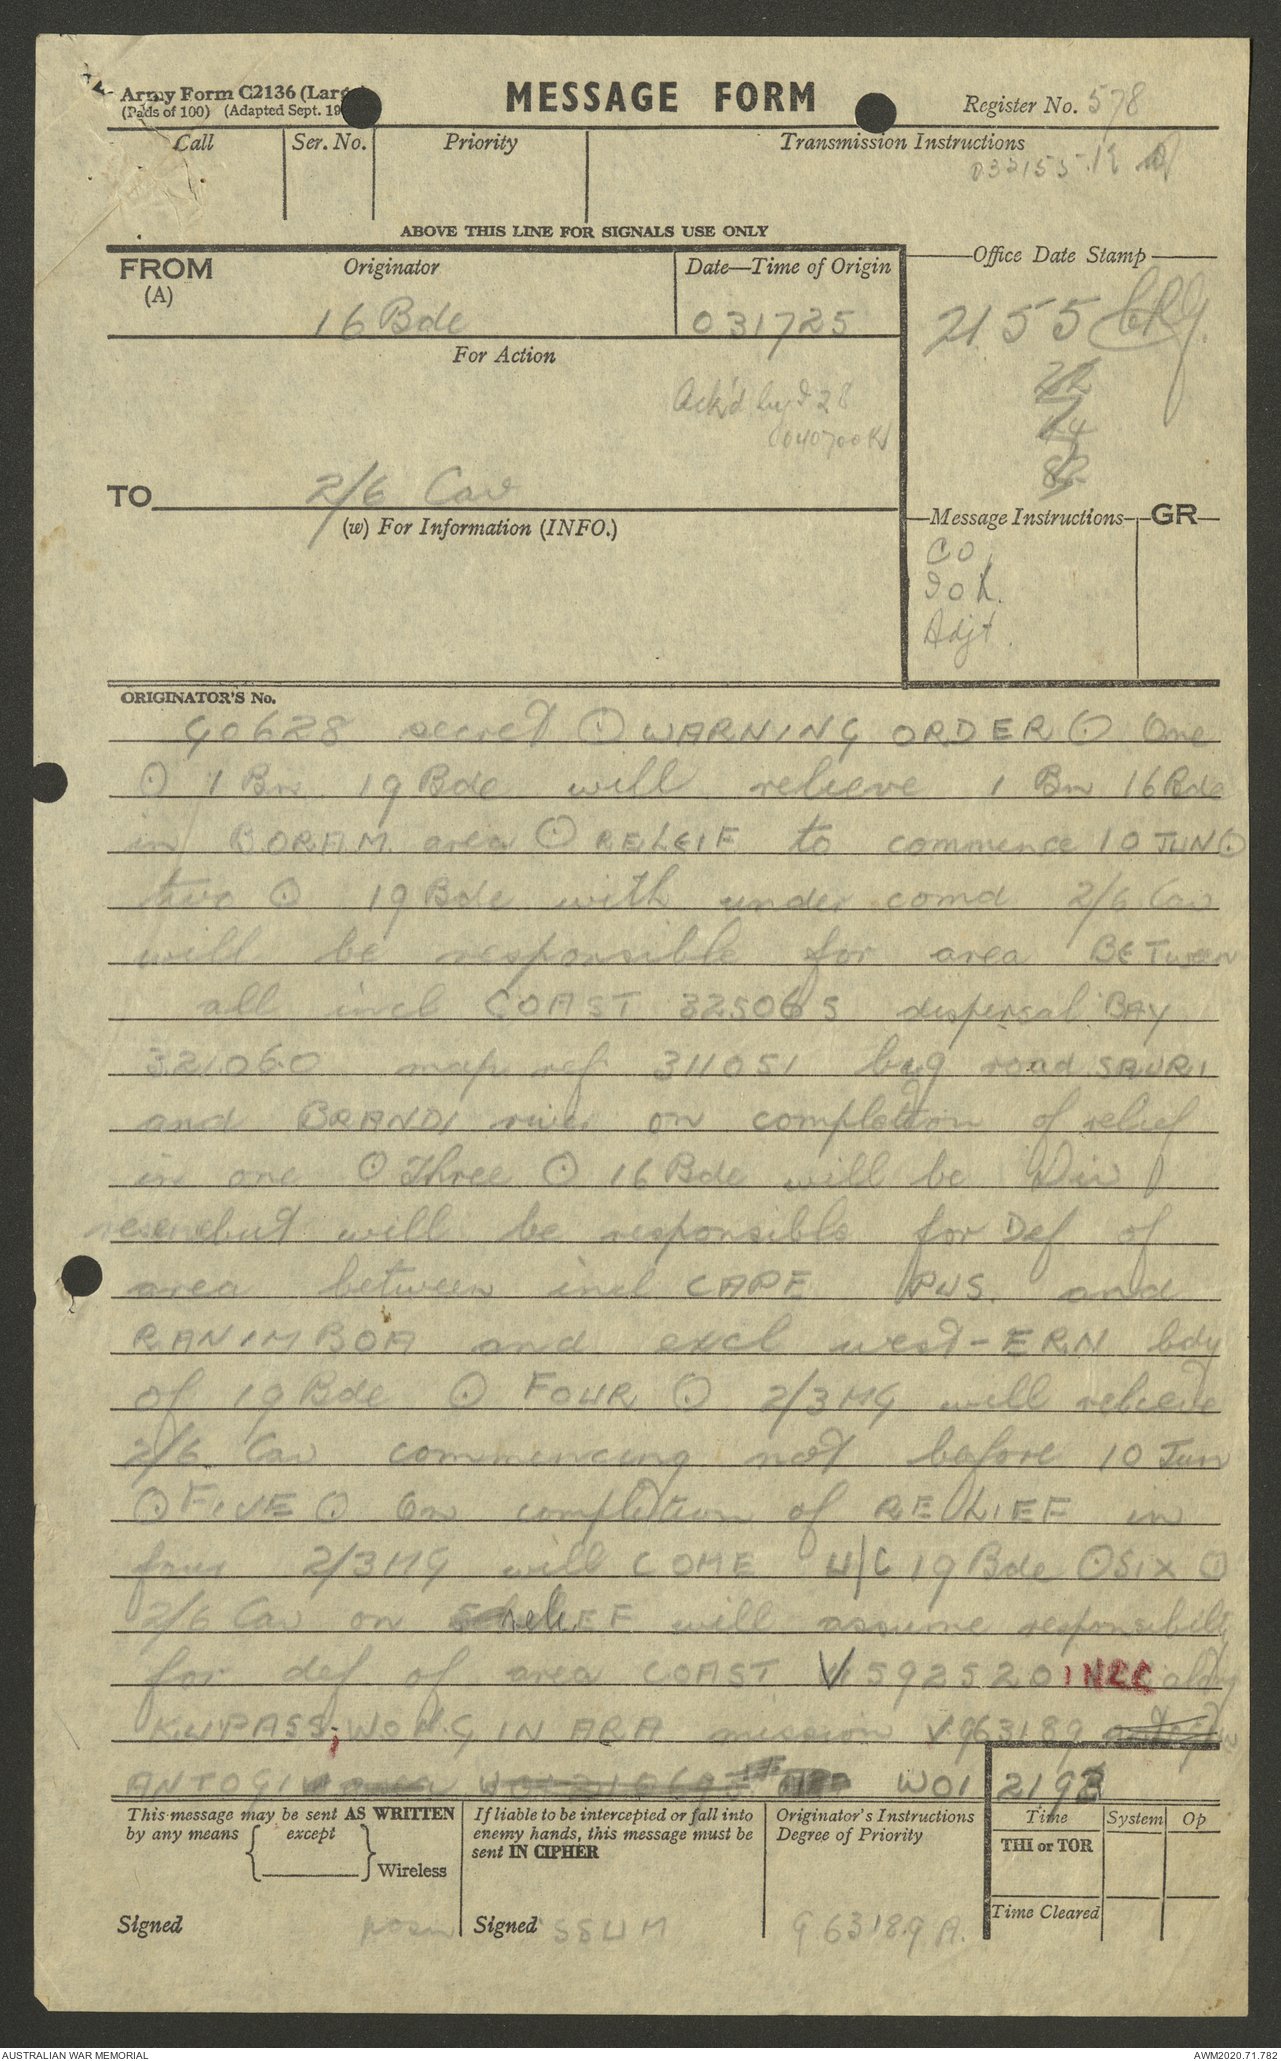 Army Form C2136 (Larg
(Pads of 100) (Adapted Sept. 19
MESSAGE FORM
Register No. 578
Call
Ser. No.
Priority
Transmission Instructions
032155
ABOVE THIS LINE FOR SIGNALS USE ONLY
FROM
(A)
Originator
16 Bde
Date—Time of Origin
031725
Office Date Stamp
2155
For Action
Ack'd by
040700K
TO
2/6 Cav
(w) For Information (INFO.)
Message Instructions
GR
CO
IO
Adjt.
ORIGINATOR'S No.
GO628 secret ⊙ WARNING ORDER ⊙ One
⊙ 1 Bn 19 Bde will relieve 1 Bn 16 Bde
in BORAM area ⊙ RELEIF to commence 10 JUN ⊙
two ⊙ 19 Bde with under comd 2/6 Cav
will be responsible for area BETween
all incl COAST 325065 dispersal BAY
321060 map ref 311051 road SAURI
and BRANDI river on completion of relief
in one ⊙ Three ⊙ 16 Bde will be Div
reserve but will be responsible for Def of
area between incl CAPE PUS. and
RANIMBOA and excl west-ERN bdy
of 19 Bde ⊙ FOUR ⊙ 2/3 MG will relieve
2/6 Cav commencing not before 10 Jun
⊙ FIVE ⊙ On completion of RELIEF in
four 2/3 MG will COME U/C 19 Bde ⊙ SIX ⊙
2/6 Cav on relIEF will assume responsibilt
for def of area COAST 592520 INCC along
KUPASS; WONGINARA mission V.963189
ANTOGI WOI 2193
This message may be sent AS WRITTEN
by any means { except } Wireless
Signed
If liable to be intercepted or fall into
enemy hands, this message must be
sent IN CIPHER
Signed SSUM
Originator's Instructions
Degree of Priority
963189 A.
Time
System
Op
THI or TOR
Time Cleared
AUSTRALIAN WAR MEMORIAL
AWM2020.71.782